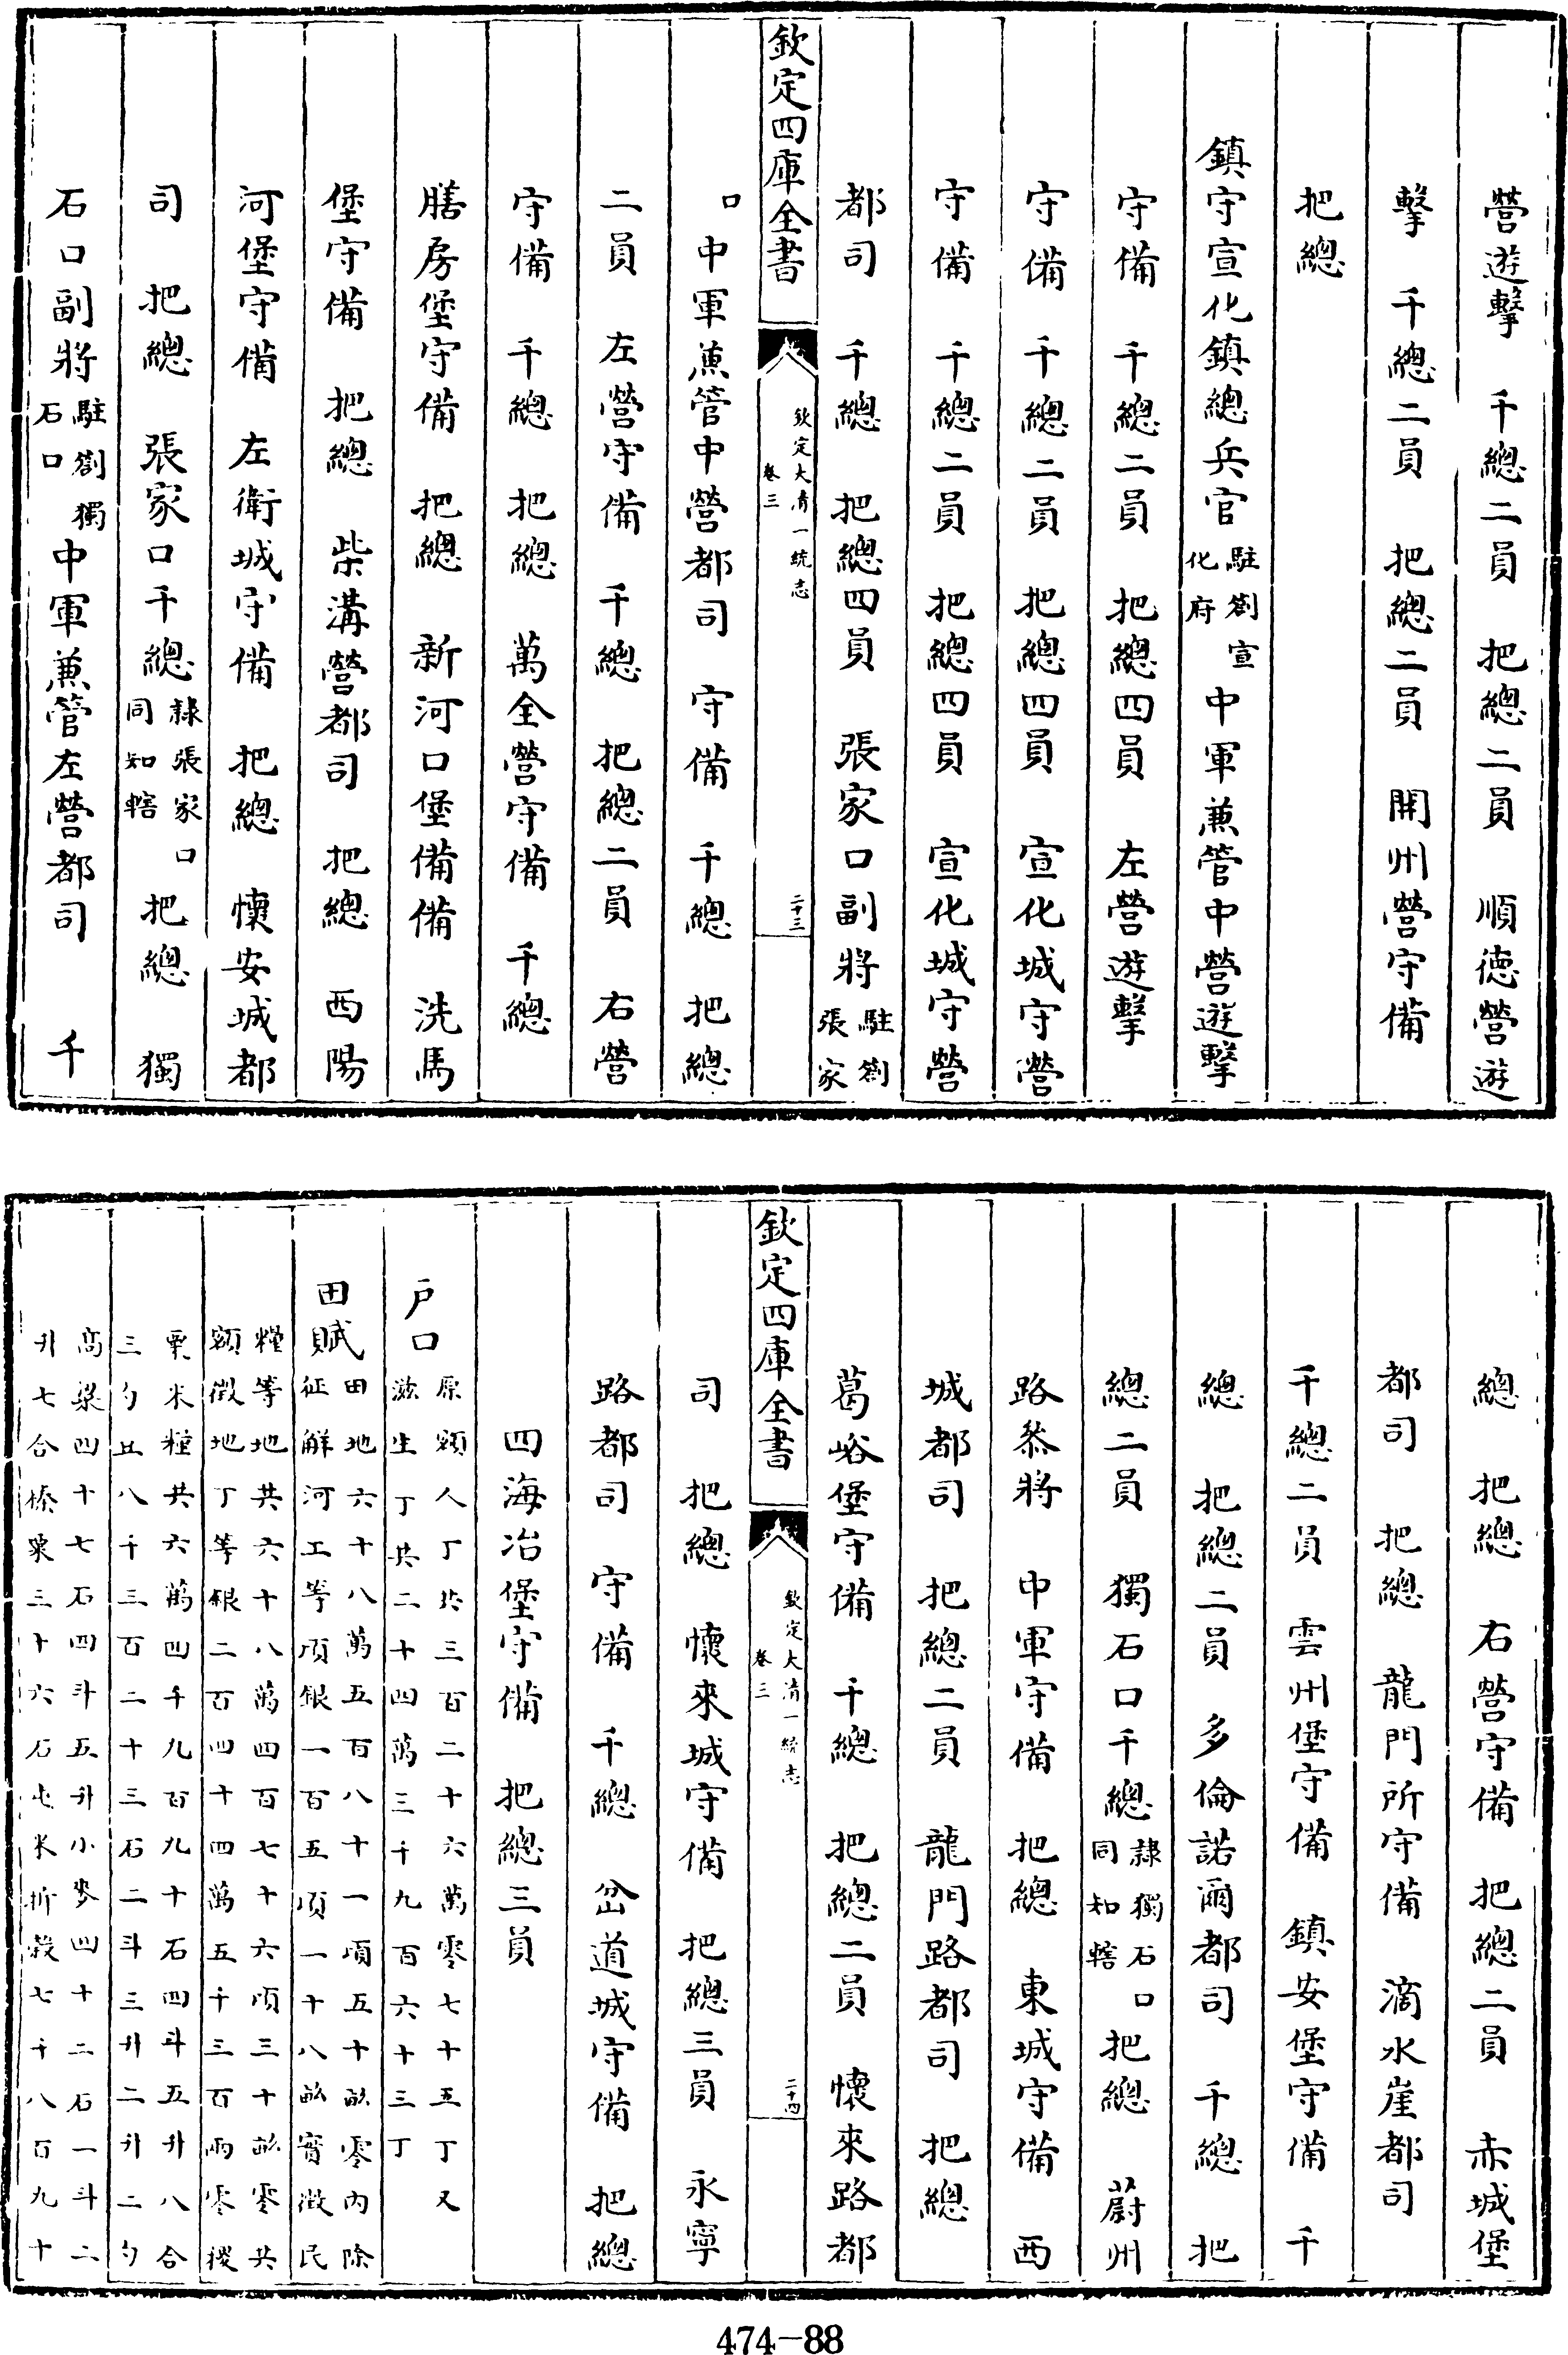 營遊擊　千總二員　把總二員　順德營遊
擊　千總二員　把總二員　開州營守備
把總
鎮守宣化鎮總兵官駐劄宣化府　中軍兼管中營遊擊
守備　千總二員　把總四員　左營遊擊
守備　千總二員　把總四員　宣化城守營
守備　千總二員　把總四員　宣化城守營
都司　千總　把總四員　張家口副將駐劄張家
欽定四庫全書　欽定大清一統志　卷三　二十三
口　中軍兼管中營都司　守備　千總　把總
二員　左營守備　千總　把總二員　右營
守備　千總　把總　萬全營守備　千總
膳房堡守備　把總　新河口堡備備　洗馬
堡守備　把總　柴溝營都司　把總　西陽
河堡守備　左衛城守備　把總　懷安城都
司　把總　張家口千總隸張家口同知轄　把總　獨
石口副將駐劄獨石口　中軍兼管左營都司　千
總　把總　右營守備　把總二員　赤城堡
都司　把總　龍門所守備　滴水崖都司
千總二員　雲州堡守備　鎮安堡守備　千
總　把總二員　多倫諾爾都司　千總　把
總二員　獨石口千總隸獨石口同知轄　把總　蔚州
路叅將　中軍守備　把總　東城守備　西
城都司　把總二員　龍門路都司　把總
葛峪堡守備　千總　把總二員　懷來路都
欽定四庫全書　欽定大清一統志　卷三　二十四
司　把總　懷來城守備　把總三員　永寧
路都司　守備　千總　岔道城守備　把總
四海冶堡守備　把總三員
戶口原額人丁共三百二十六萬零七十五丁又
滋生丁共二十四萬三千九百六十三丁
田賦田地六十八萬五百八十一頃五十畝零內除
征解河工等項銀一百五頃一十八畝實徵民
糧等地共六十八萬四百七十六頃三十畝零共
額徵地丁等銀二百四十四萬五千三百兩零稷
粟米糧共六萬四千九百九十石四斗五升八合
三勺豆八千三百二十三石二斗三升二升二勺
高粱四十七石四斗五升小麥四十二石一斗二
升七合榛栗三十六石屯米折穀七千八百九十
474-88